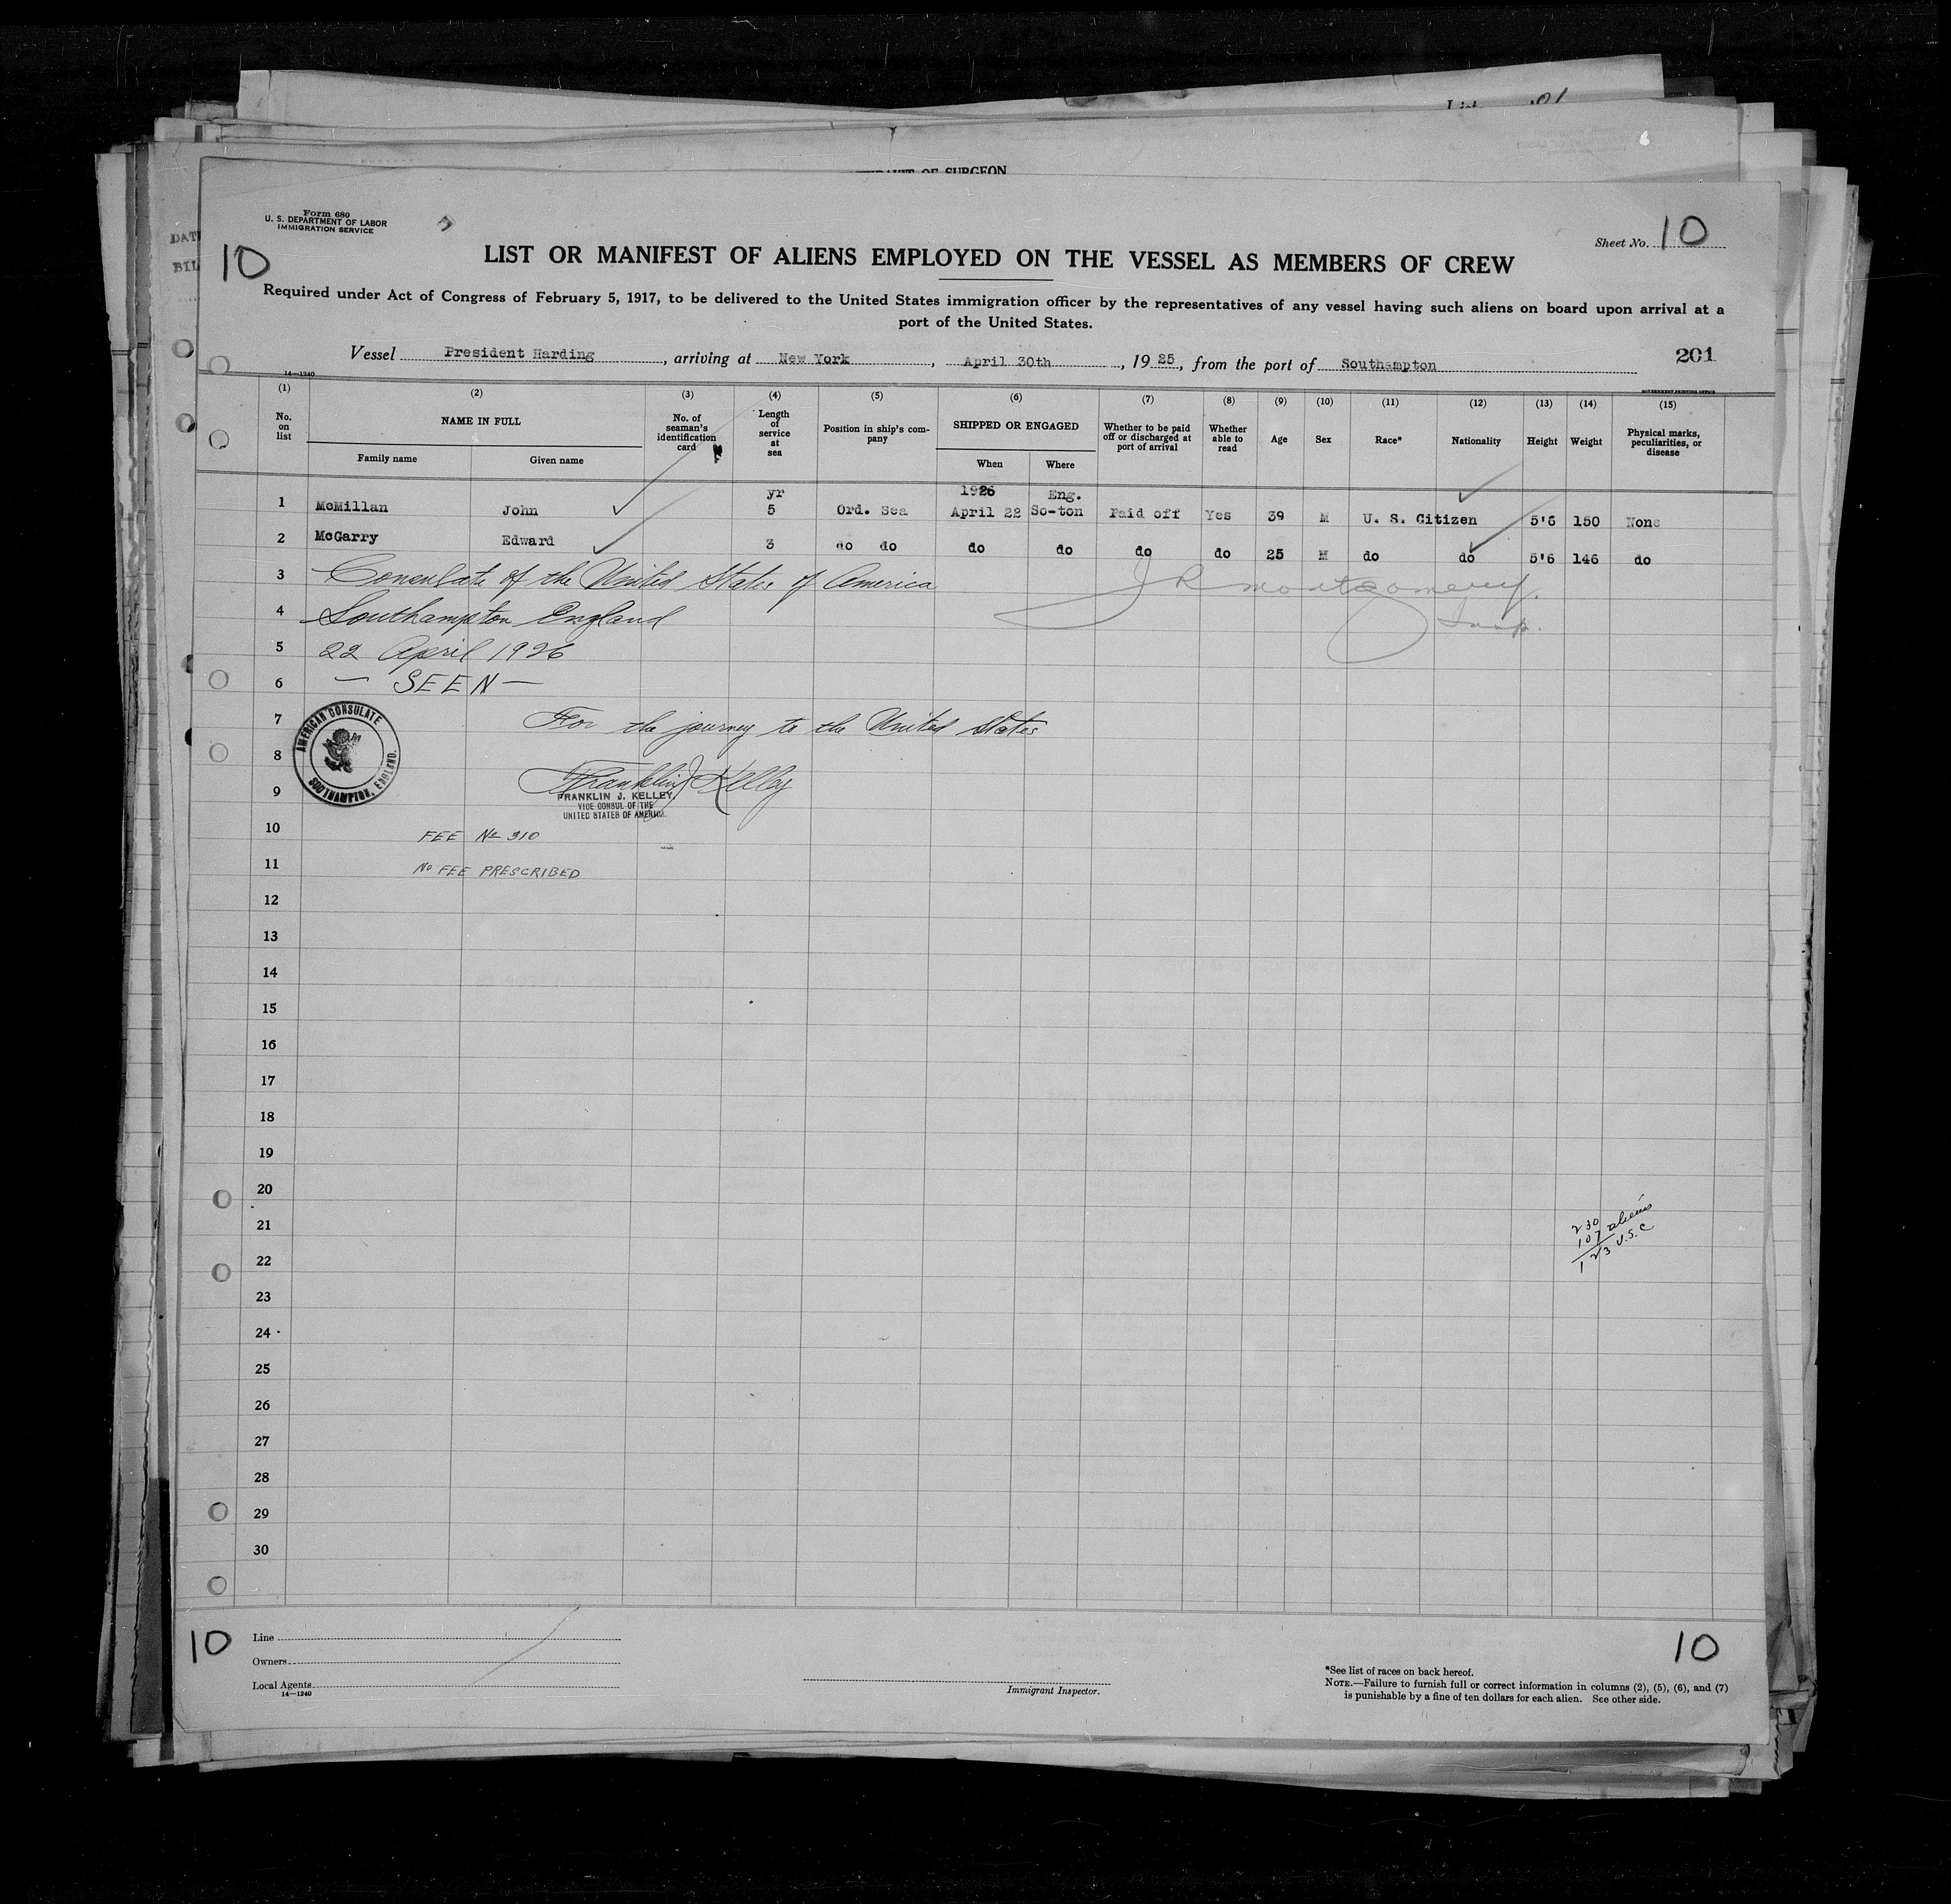 AFFIDAVIT OF SURGEON
Form 680
U. S. DEPARTMENT OF LABOR
IMMIGRATION SERVICE
DAT
BIL
10
Sheet No. 10
LIST OR MANIFEST OF ALIENS EMPLOYED ON THE VESSEL AS MEMBERS OF CREW
Required under Act of Congress of February 5, 1917, to be delivered to the United States immigration officer by the representatives of any vessel having such aliens on board upon arrival at a
port of the United States.
Vessel President Harding, arriving at New York, April 30th, 1925, from the port of Southampton
201
14—1240
GOVERNMENT PRINTING OFFICE
(1) (2) (3) (4) (5) (6) (7) (8) (9) (10) (11) (12) (13) (14) (15)
No. on list NAME IN FULL No. of seaman's identification card Length of service at sea Position in ship's com-pany SHIPPED OR ENGAGED Whether to be paid off or discharged at port of arrival Whether able to read Age Sex Race* Nationality Height Weight Physical marks, peculiarities, or disease
Family name Given name When Where
yr 1926 Eng.
1 McMillan John 5 Ord. Sea April 22 So-ton Paid off Yes 39 M U. S. Citizen 5'6 150 None
2 McGarry Edward 3 do do do do do do 25 M do do 5'6 146 do
3 Consulate of the United States of America J R Montgomery
4 Southampton England Insp.
5 22 April 1926
6 — SEEN —
7 For the journey to the United States
AMERICAN CONSULATE
SOUTHAMPTON, ENGLAND.
8
9 Franklin J Kelley
FRANKLIN J. KELLEY,
VICE CONSUL OF THE
UNITED STATES OF AMERICA.
10 FEE No 310
11 NO FEE PRESCRIBED
12
13
14
15
16
17
18
19
20
21
22
23
24
25
26
27
28
29
30
230
107 aliens
123 U.S.C
10
Line
Owners
Local Agents
14—1240
Immigrant Inspector.
10
*See list of races on back hereof.
NOTE.—Failure to furnish full or correct information in columns (2), (5), (6), and (7)
is punishable by a fine of ten dollars for each alien. See other side.